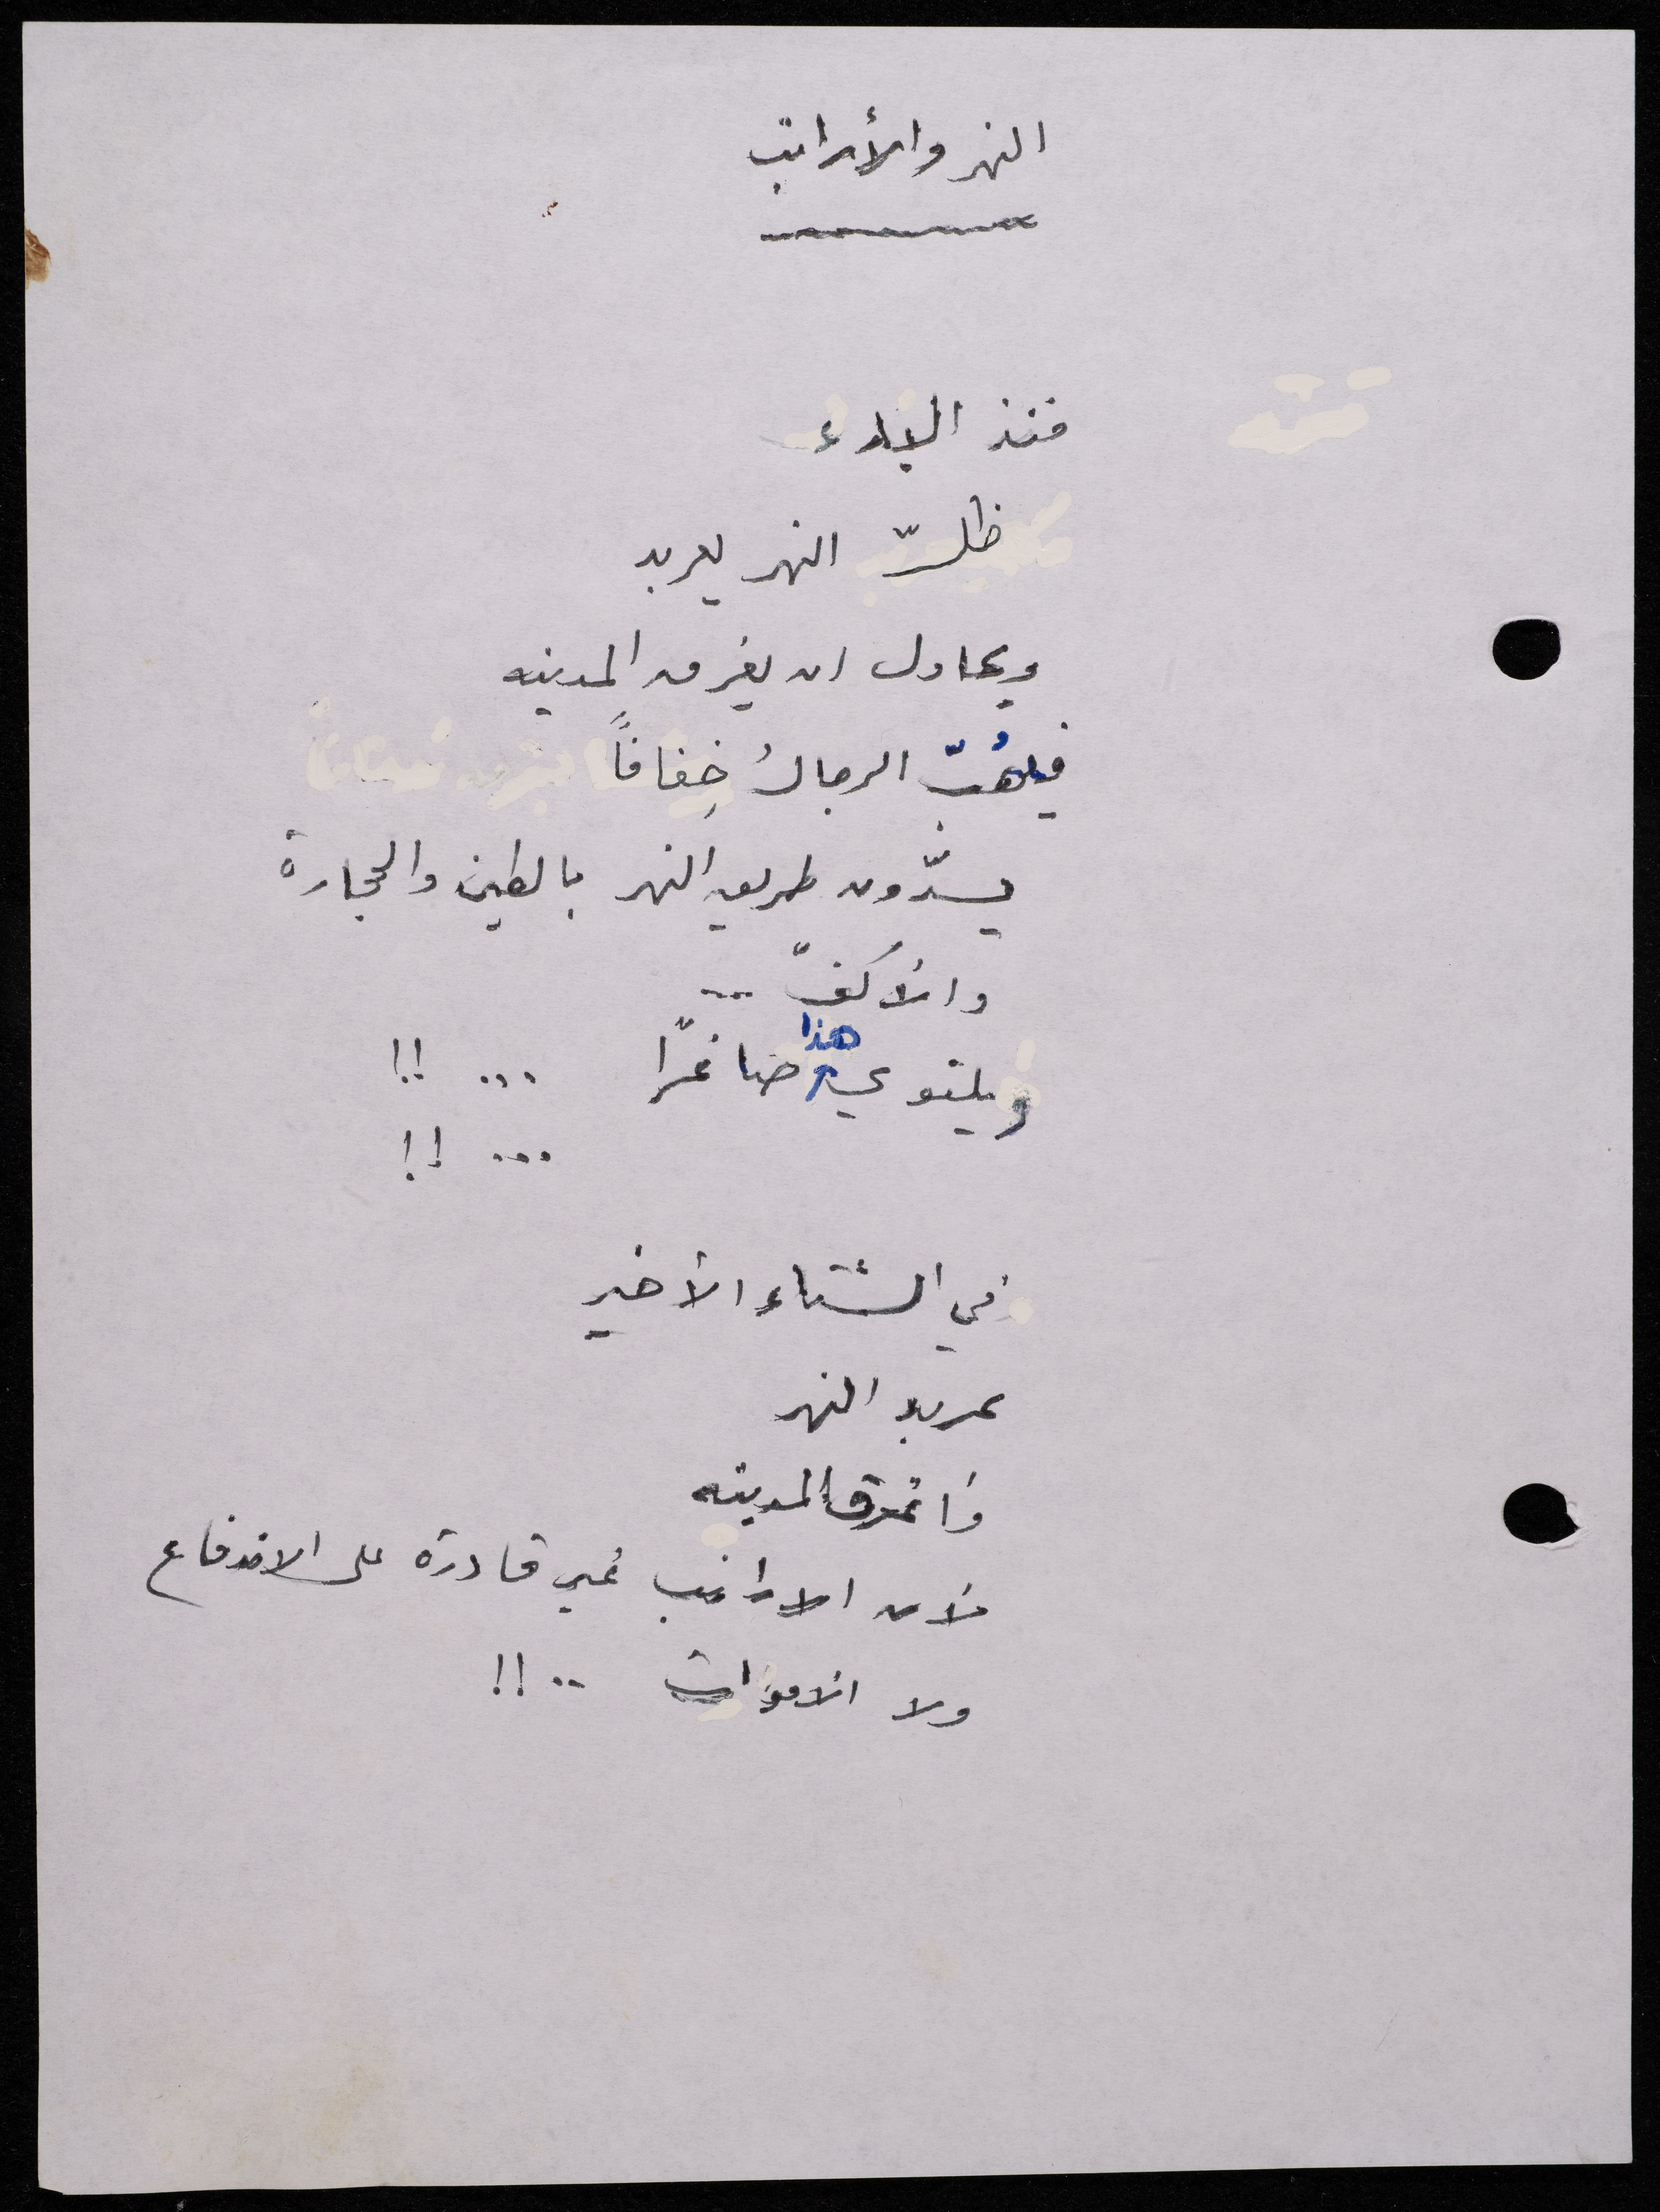 النهر والأرانب
منذ البدء
ظلّ النهر يعربد
ويحاول ان يغرق المدينه
فيهُبّ الرجالُ خِفافاً
يسدّون طريق النهر بالطين والحجارة
والأكفّ ...
ويلتوي هذا صاغرًا ... !!
... !!
في الشتاء الأخير
عربد النهر
وأغرق المدينه
فلأن الارانب غير قادرة على الاندفاع
ولا الأموات .. !!